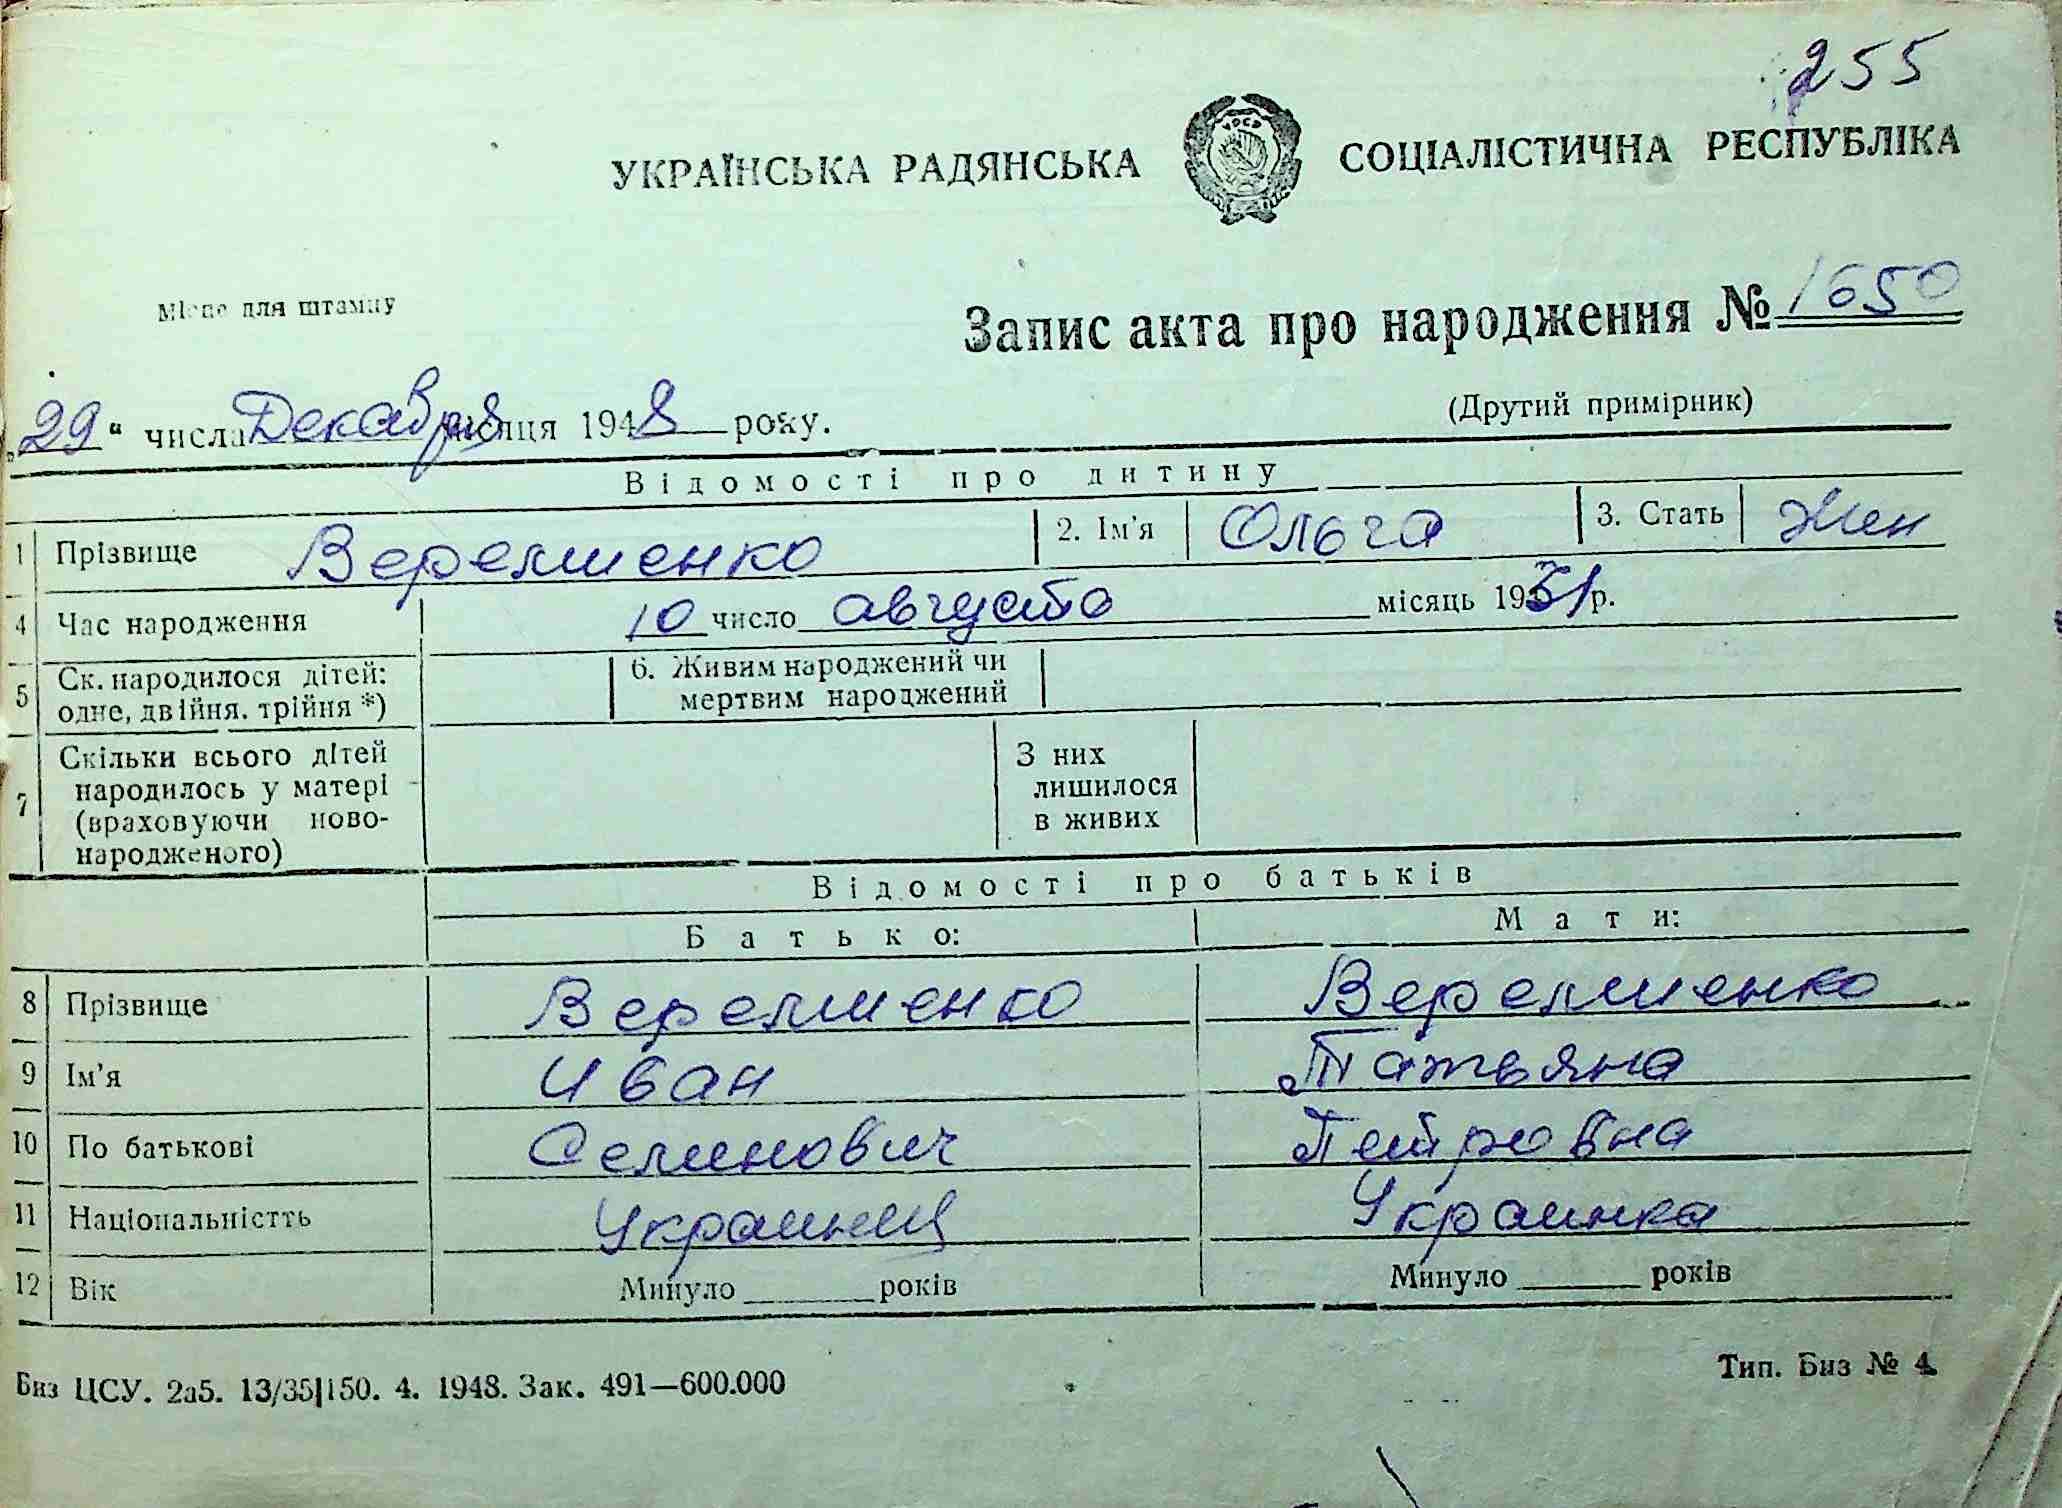 255
УКРАЇНСЬКА РАДЯНСЬКА СОЦІАЛІСТИЧНА РЕСПУБЛІКА
УРСР
Місце для штампу
Запис акта про народження № 1650
(Другий примірник)
„29“ числа Декабря місяця 1948 року.
Відомості про дитину
1 Прізвище Веремиенко 2. Ім'я Ольга 3. Стать Жен
4 Час народження 10 число августа місяць 1931 р.
5 Ск. народилося дітей: одне, двійня, трійня *) 6. Живим народжений чи мертвим народжений
7 Скільки всього дітей народилось у матері (враховуючи ново-народженого) З них лишилося в живих
Відомості про батьків
Батько: Мати:
8 Прізвище Веремиенко Веремиенко
9 Ім'я Иван Татьяна
10 По батькові Семинович Петровна
11 Національністть Украинец Украинка
12 Вік Минуло ______ років Минуло ______ років
Биз ЦСУ. 2а5. 13/35|150. 4. 1948. Зак. 491—600.000
Тип. Биз № 4.